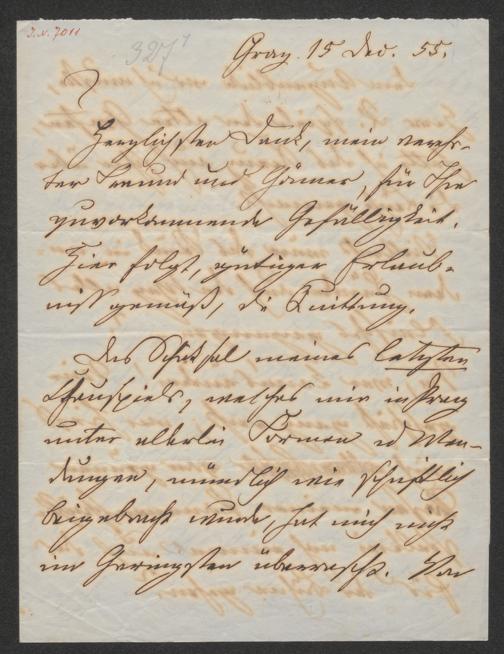 I.N. 7011
327
Graz. 15 Dec. 55.
Herzlichsten Dank, mein verehr-
ter Freund und Gönner, für Ihre
zuvorkommende Gefälligkeit.
Hier folgt, gütiger Erlaub-
niß gemäß, die Quittung.
Das Schicksal meines letzten
Schauspiels, welches mir in Prag
unter allerlei Formen u Wen-
dungen, mündlich wie schriftlich
beigebracht wurde, hat mich nicht
im Geringsten überrascht. Von